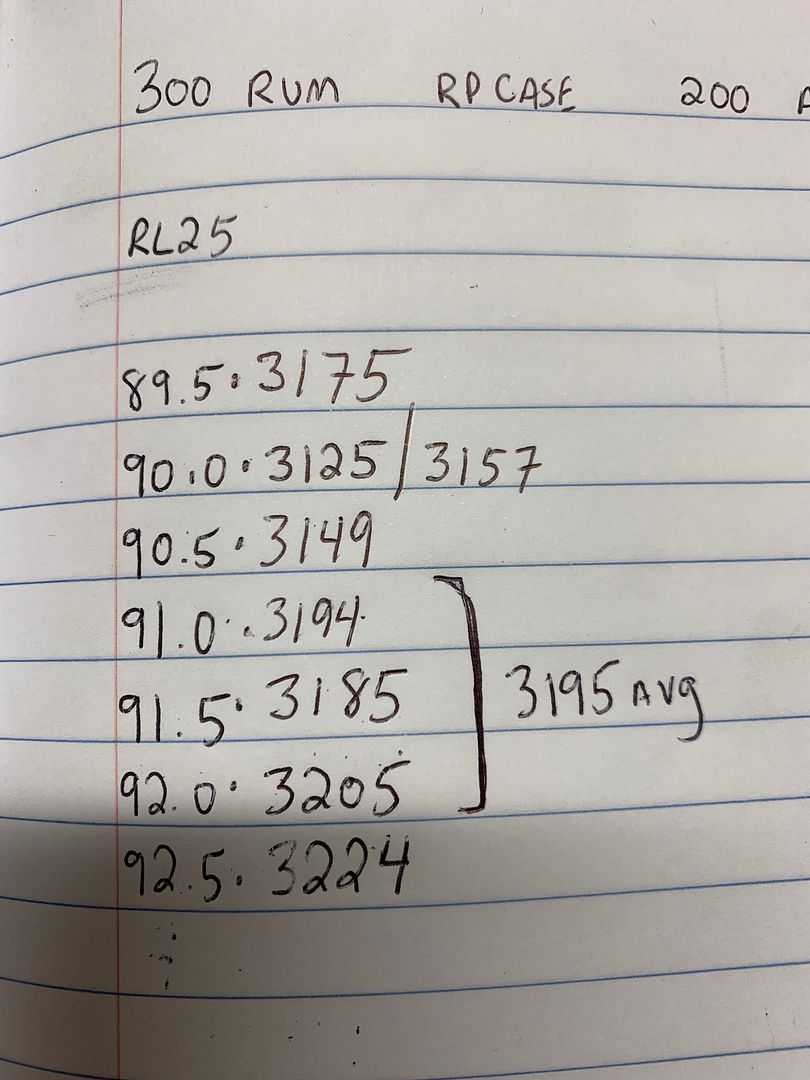 300 RUM RP CASE 200
RL25
89.5 · 3175
90.0 · 3125 / 3157
90.5 · 3149
91.0 · 3194
91.5 · 3185
92.0 · 3205
3195 AVG
92.5 · 3224